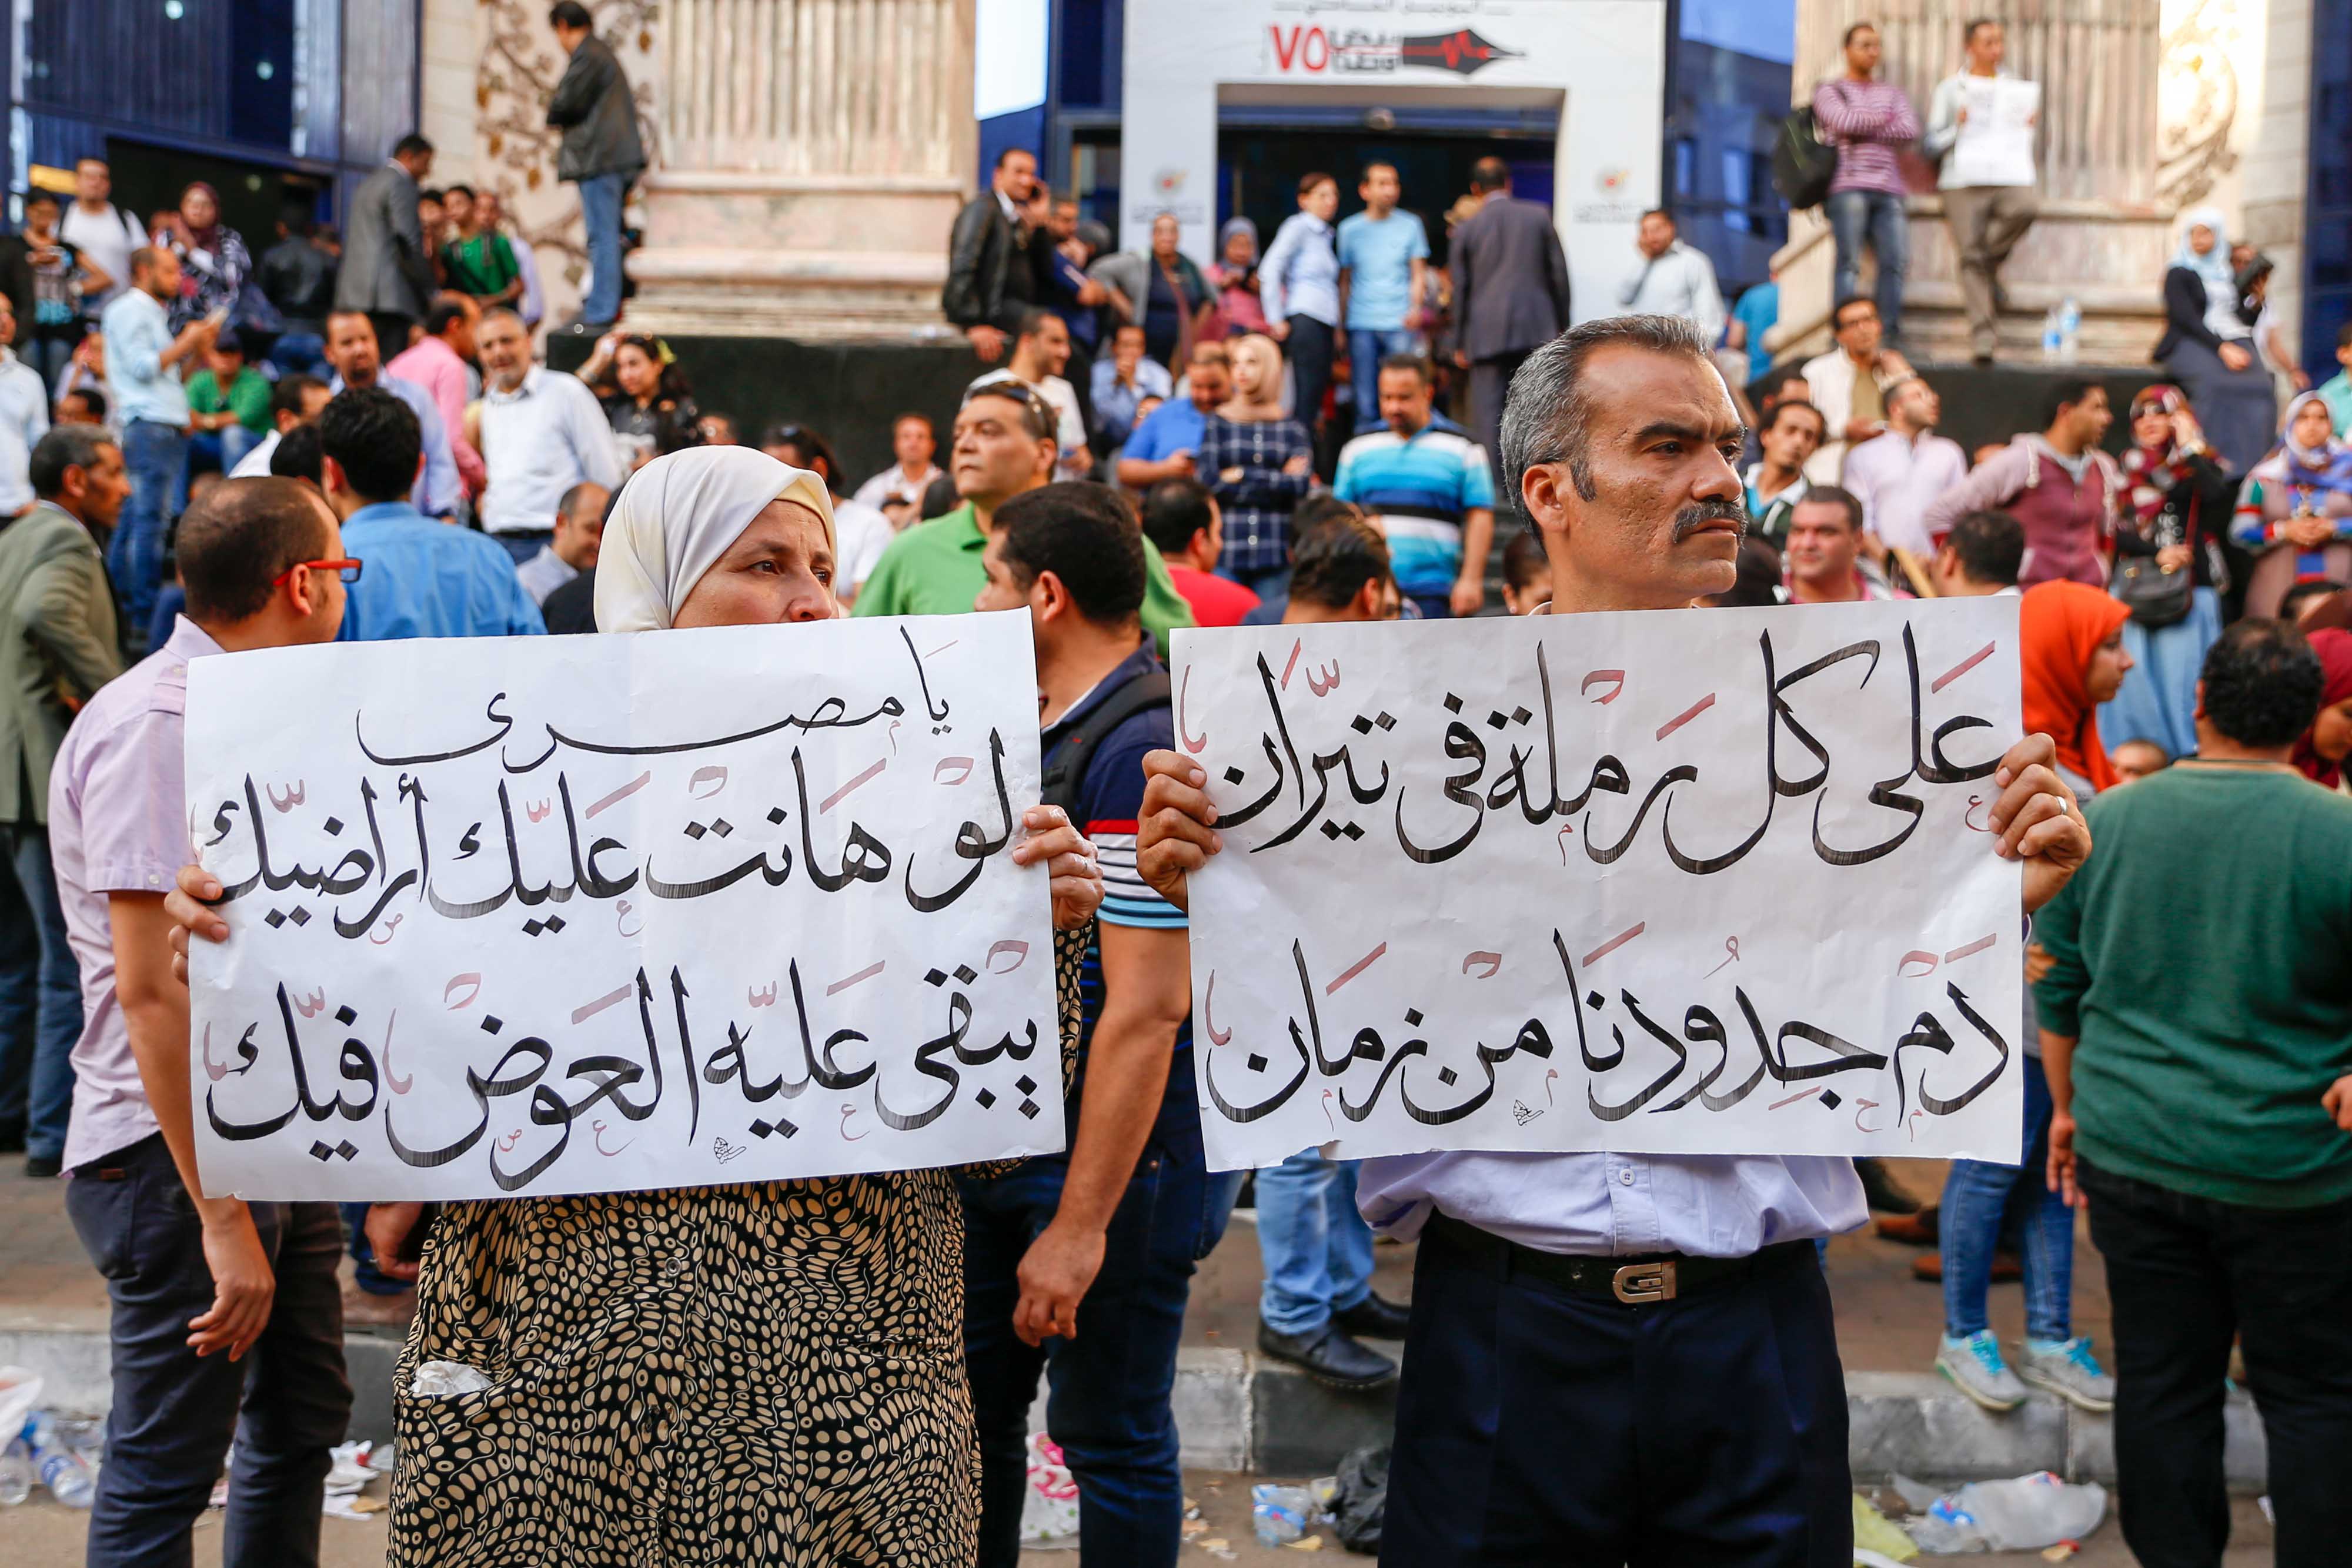 يا مصرى
لَوْ هَانتْ عَليّك أراضيّك
يبْقى عَليّه العَوضْ فيّك
عَلى كل رَمْلة فى تيّرَان
دَمْ جِدُودنَا منْ زمَان
VO